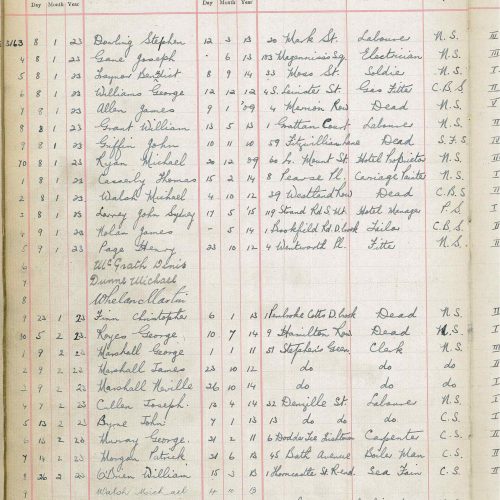 Day Month Year Day Month Year
3163 8 1 23 Darling Stephen 12 3 13 20 Mark St. Labourer N.S.
4 8 1 23 Gane Joseph . 6 13 103 Magennis Sq. Electrician N.S.
5 8 1 23 8 9 14 33 Moss St. Soldier N.S.
6 8 1 23 Williams George 12 12 12 45 Leinster St. Gas Fitter C.B.S.
7 8 1 23 Allen James 9 1 '09 4 Merrion Row Dead N.S.
8 8 1 23 Grant William 13 5 13 1 Grattan Court Labourer N.S.
9 8 1 23 Griffin John 10 11 10 59 Fitzwilliam Lane Dead S.F.S.
70 8 1 23 Ryan Michael 20 12 09 60 Lr. Mount St. Hotel Proprietor N.S.
1 8 1 23 Casserly Thomas 15 2 14 8 Pearse Pl. Carriage Painter N.S.
2 8 1 23 Walsh Michael 4 10 12 39 Westland Row Dead C.B.S.
3 8 1 23 John Sydney 17 5 '15 119 Strand Rd S. Mt. Hotel Manager P.S.
4 9 1 23 Nolan James - 5 14 1 Brookfield Rd D. brook Tailor C.B.S.
5 9 1 23 Page Henry 23 10 12 4 Wentworth Pl. Fitter N.S.
6 McGrath Denis
7 Dunne Michael
8 Whelan Martin
9 23 1 23 Finn Christopher 6 1 13 Pembroke Cotts D. brook Dead N.S.
80 5 2 23 Royes George 10 7 14 9 Hamilton Row Dead N.S.
1 9 2 23 Marshall George 1 1 11 51 Stephen's Green Clerk N.S.
2 9 2 23 Marshall James 23 10 12 do do do
3 9 2 23 Marshall Neville 26 10 14 do do do
4 7 2 23 Cullen Joseph. 13 4 14 32 Denzille St. Labourer N.S.
5 13 2 23 Byrne John 7 1 13 13 do do C.S.
6 13 2 23 Murray George. 21 2 11 6 Dodder Tce Carpenter C.S.
7 14 2 23 Morgan Patrick 31 6 13 45 Bath Avenue Boiler Man C.S.
8 26 2 23 O'Brien William 15 3 13 1 C.S.
9 Walsh Michael 4 13